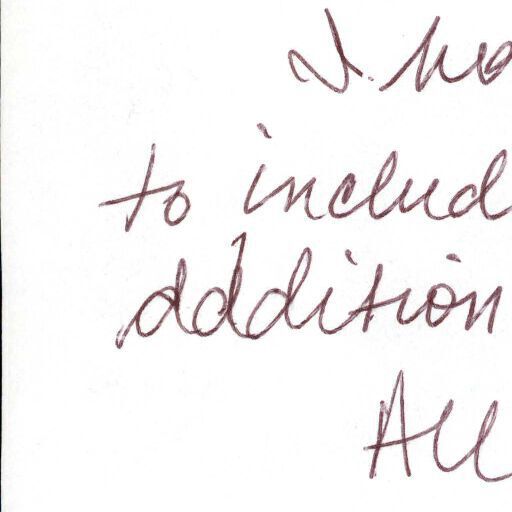 I ho
to includ
addition
All